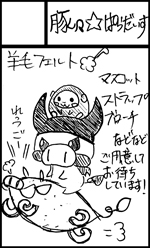 豚しゅ☆ぱらだいす
羊毛フェルト
マスコット
ストラップ
ブローチ
などなど
ご用意して
お待ち
しています!
れっつごー